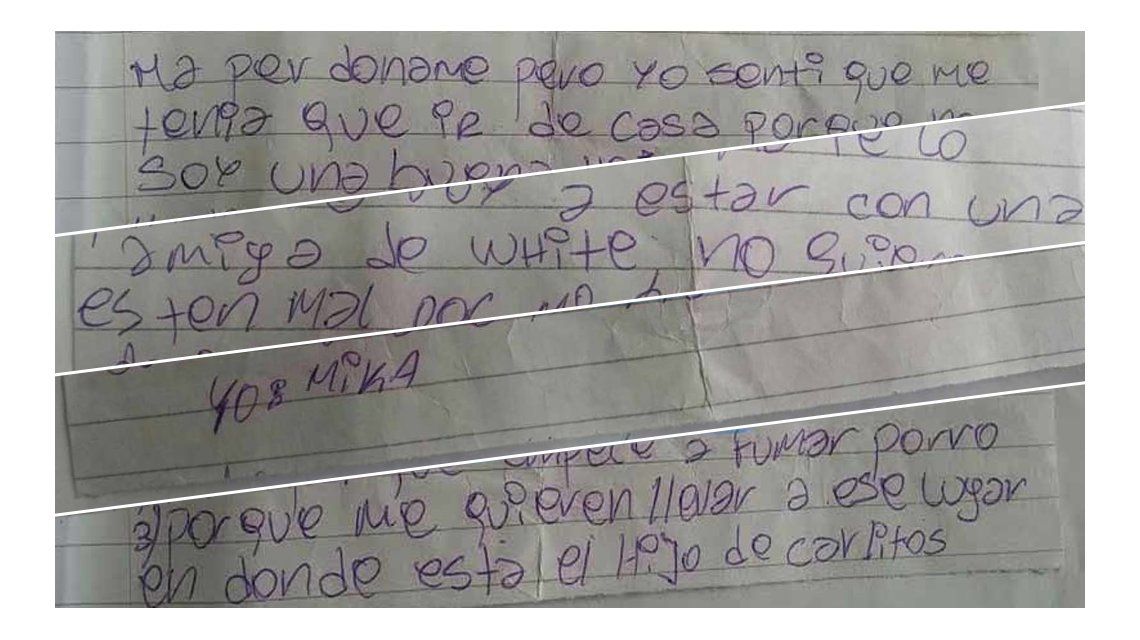 Ma per doname pero yo senti que me
tenia que ir de casa porque no
soy una buena
a estar con una
amiga de white no
esten mal por
Yo: Mika
empece a fumar porro
3) porque me quieren llevar a ese lugar
en donde esta el Hijo de carlitos